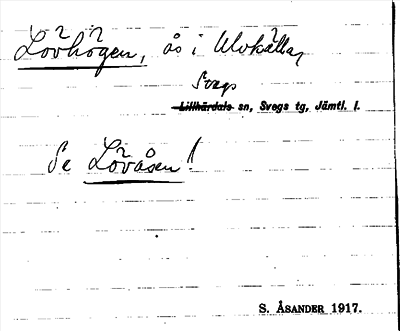 Lövhögen, ås i Ulvkälla,
Svegs
Lillhärdals sn, Svegs tg, Jämtl. l.
Se Lövåsen!
S. ÅSANDER 1917.